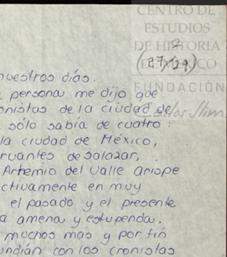 CENTRO DE
ESTUDIOS
DE HISTORIA
2
(27/29)
FUNDACIÓN
Carlos Slim
nuestros días.
persona me dijo que
onistas de la ciudad de
sólo sabía de cuatro:
la ciudad de México,
rvantes de Salazar,
Artemio del Valle Arispe
ctivamente en muy
el pasado y el presente
a amena y estupenda.
muchos más y por fin
undían con los cronistas